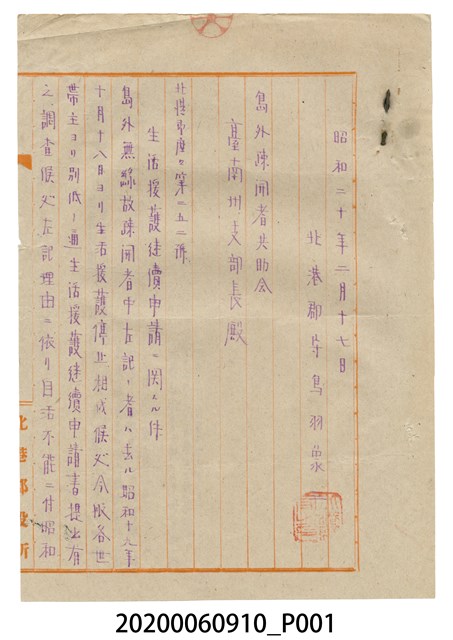 昭和二十年二月十七日
北港郡守鳥羽
島外疎開者共助会
臺南州支部長殿
北港郡庶ヒ第二五二號
生活援護継續申請ニ関スル件
島外無縁故疎開者中左記ノ者ハ去ル昭和十九年
十月十八日ヨリ生活援護停止相成候処今般各世
帯主ヨリ別紙ノ通生活援護継續申請書提出有
之調査候処左記理由ニ依リ自活不能ニ付昭和
北港郡役所
20200060910_P001